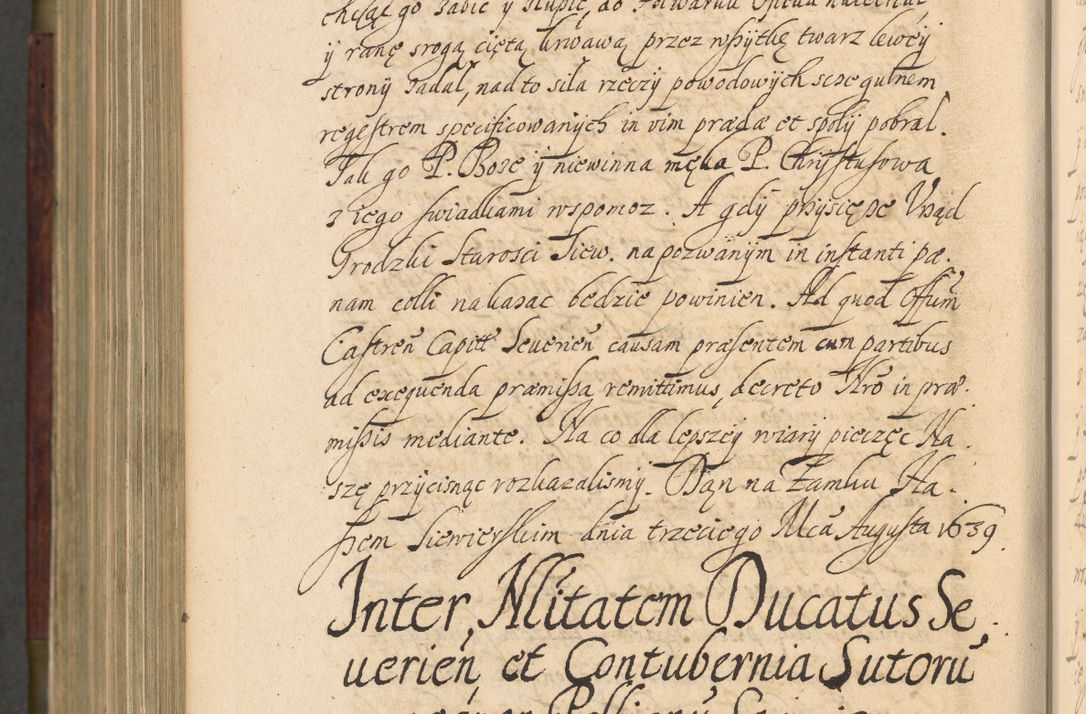 chcąc go zabic y złupic, do Folwarku
y ranę srogą ciętą krwawą przez wszytkę twarz lewey
strony zadał, nadto siła rzeczy powodowych szczegulnem
regestrem specificowanych in vim prædæ et spolij pobrał.
Tak go P. Boże y niewinna męka P. Chrystusowa
z iego swiadkami wspomoz. A gdy przysięże Vrząd
Grodzki Starosci Siew. na pozwanym in instanti pæ.
nam colli nakazac będzie powinien. Ad quod Offum
Castreñ Capitt Seuerień causam præsentem cum partibus
ad exequenda præmissa remittimus, decreto Nro in præ.
missis mediante. Na co dla lepszey wiary pieczęc Na.
szę przycisnąc rozkazalismy. Dan na Zamku Na.
szem Siewierskim dnia trzeciego Mca Augusta 1639.
Inter Nlitatem Ducatus Se.
uerień, et Contubernia Sutorũ